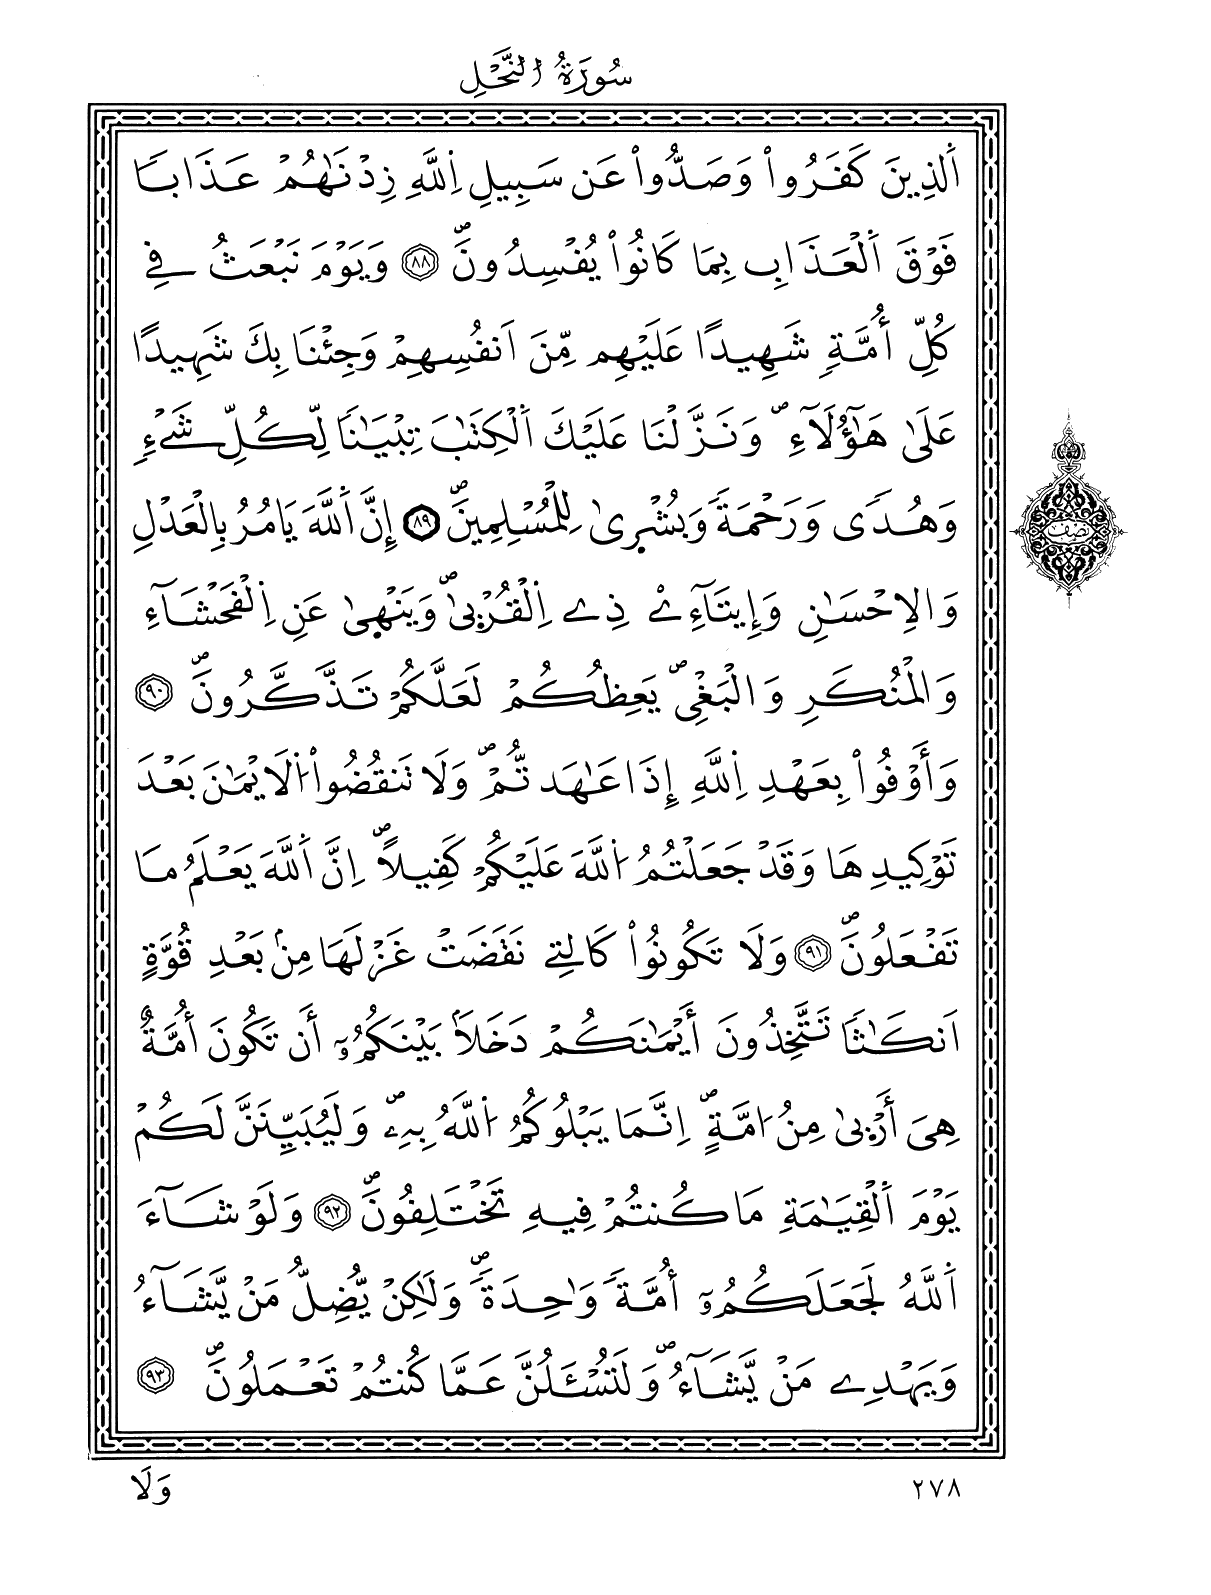 سُورَةُ النَّحْلِ
اَلذِينَ كَفَرُواْ وَصَدُّواْ عَن سَبِيلِ اِللَّهِ زِدْنَٰهُمْ عَذَاباٗ
فَوْقَ اَلْعَذَابِ بِمَا كَانُواْ يُفْسِدُونَۖ ٨٨ وَيَوْمَ نَبْعَثُ فِے
كُلِّ أُمَّةٖ شَهِيداً عَلَيْهِم مِّنَ اَنفُسِهِمْ وَجِئْنَا بِكَ شَهِيداً
عَلَىٰ هَٰٓؤُلَآءِۖ وَنَزَّلْنَا عَلَيْكَ اَلْكِتَٰبَ تِبْيَٰناٗ لِّكُلِّ شَےْءٖ
وَهُدىٗ وَرَحْمَةٗ وَبُشْر۪ىٰ لِلْمُسْلِمِينَۖ ٨٩ إِنَّ اَللَّهَ يَامُرُ بِالْعَدْلِ
وَالِاحْسَٰنِ وَإِيتَآءِےْ ذِے اِلْقُرْب۪ىٰۖ وَيَنْه۪ىٰ عَنِ اِلْفَحْشَآءِ
وَالْمُنكَرِ وَالْبَغْيِۖ يَعِظُكُمْ لَعَلَّكُمْ تَذَّكَّرُونَۖ ٩٠
وَأَوْفُواْ بِعَهْدِ اِللَّهِ إِذَا عَٰهَدتُّمْۖ وَلَا تَنقُضُواْ اُلَايْمَٰنَ بَعْدَ
تَوْكِيدِهَا وَقَدْ جَعَلْتُمُ اُللَّهَ عَلَيْكُمْ كَفِيلاًۖ اِنَّ اَللَّهَ يَعْلَمُ مَا
تَفْعَلُونَۖ ٩١ وَلَا تَكُونُواْ كَالتِے نَقَضَتْ غَزْلَهَا مِنۢ بَعْدِ قُوَّةٍ
اَنكَٰثاٗ تَتَّخِذُونَ أَيْمَٰنَكُمْ دَخَلاَۢ بَيْنَكُمُۥٓ أَن تَكُونَ أُمَّةٌ
هِيَ أَرْب۪ىٰ مِنُ ا۟مَّةٍۖ اِنَّمَا يَبْلُوكُمُ اُللَّهُ بِهِۦۖ وَلَيُبَيِّنَنَّ لَكُمْ
يَوْمَ اَلْقِيَٰمَةِ مَا كُنتُمْ فِيهِ تَخْتَلِفُونَۖ ٩٢ وَلَوْ شَآءَ
اَللَّهُ لَجَعَلَكُمُۥٓ أُمَّةٗ وَٰحِدَةٗۖ وَلَٰكِنْ يُّضِلُّ مَنْ يَّشَآءُ
وَيَهْدِے مَنْ يَّشَآءُۖ وَلَتُسْـَٔلُنَّ عَمَّا كُنتُمْ تَعْمَلُونَۖ ٩٣
نصف
وَلَا
٢٧٨